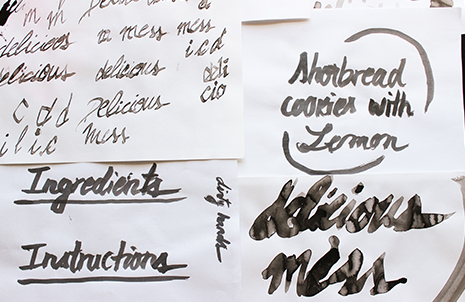 m m delicious a mess
delicious a mess mess
delicious delicious deli
c d d Delicious cio
i l i c mess
Ingredients
Instructions
dirty hands
Shorbread
cookies with
Lemon
delicious
mess